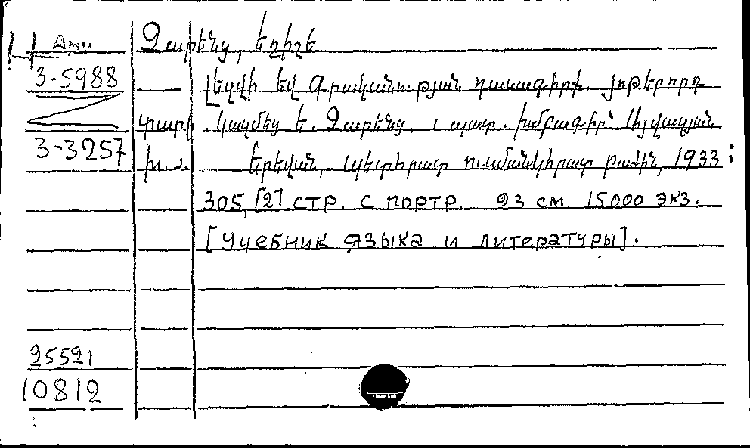 Арм
Չարենց, Եղիշե
3-5988
Լեզվի եվ գրականության դասագիրք. յոթերորդ
տարի. Կազմեց Ե. Չարենց. պատ. խմբագիր՝
3-3257
Յերեվան, պետհրատ ուսմանկհրատ բաժին, 1933:
305, [2] стр. с портр. 23 см 15000 экз.
[Учебник языка и литературы].
25521
10812